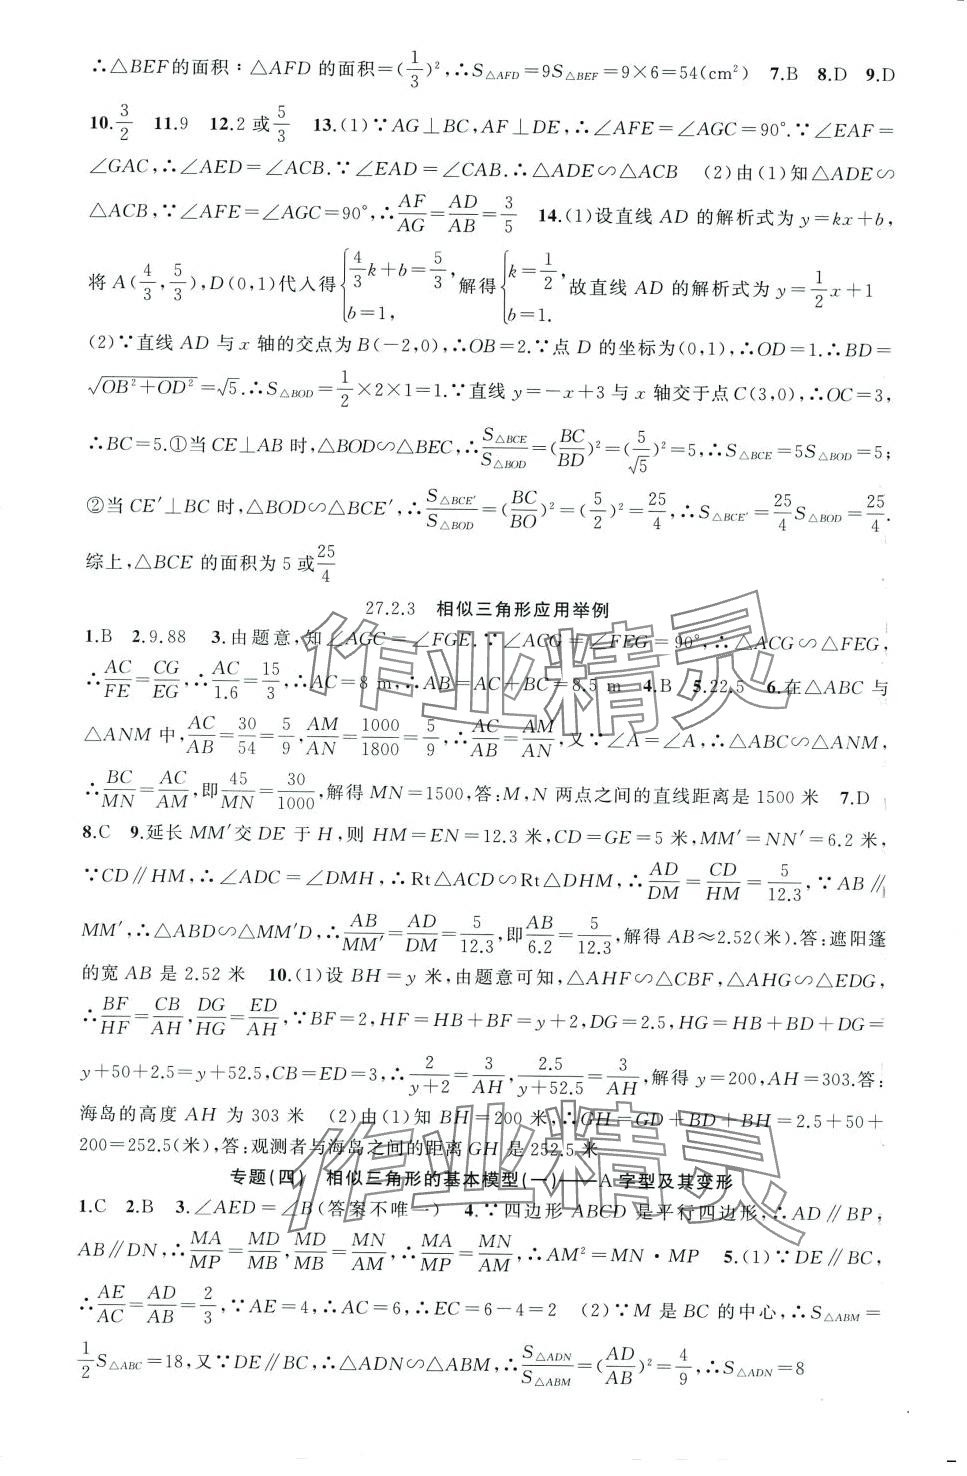 ∴△BEF的面积：△AFD 的面积=(1/3)²,∴S△AFD=9S△BEF=9×6=54(cm²)  7.B  8.D  9.D
10.3/2  11.9  12.2 或5/3  13.(1)∵AG⊥BC,AF⊥DE,∴∠AFE=∠AGC=90°.∵∠EAF=
∠GAC,∴∠AED=∠ACB.∵∠EAD=∠CAB.∴△ADE∽△ACB  (2)由(1)知△ADE∽
△ACB,∵∠AFE=∠AGC=90°,∴AF/AG=AD/AB=3/5  14.(1)设直线 AD 的解析式为 y=kx+b,
将 A(4/3,5/3),D(0,1)代入得{4/3k+b=5/3, b=1,解得{k=1/2, b=1.故直线 AD 的解析式为 y=1/2x+1
(2)∵直线 AD 与 x 轴的交点为 B(-2,0),∴OB=2.∵点 D 的坐标为(0,1),∴OD=1.∴BD=
√(OB²+OD²)=√5.∴S△BOD=1/2×2×1=1.∵直线 y=-x+3 与 x 轴交于点 C(3,0),∴OC=3,
∴BC=5.①当 CE⊥AB 时,△BOD∽△BEC,∴S△BCE/S△BOD=(BC/BD)²=(5/√5)²=5,∴S△BCE=5S△BOD=5;
②当 CE′⊥BC 时,△BOD∽△BCE′,∴S△BCE′/S△BOD=(BC/BO)²=(5/2)²=25/4,∴S△BCE′=25/4S△BOD=25/4.
综上,△BCE 的面积为 5 或25/4
27.2.3  相似三角形应用举例
1.B  2.9.88  3.由题意,知∠AGC=∠FGE.∵∠ACG=∠FEG=90°,∴△ACG∽△FEG,
∴AC/FE=CG/EG,∴AC/1.6=15/3,∴AC=8 m,∴AB=AC+BC=8.5 m  4.B  5.22.5  6.在△ABC 与
△ANM 中,AC/AB=30/54=5/9,AM/AN=1000/1800=5/9,∴AC/AB=AM/AN,又∵∠A=∠A,∴△ABC∽△ANM,
∴BC/MN=AC/AM,即45/MN=30/1000,解得 MN=1500,答:M,N 两点之间的直线距离是 1500 米  7.D
8.C  9.延长 MM′交 DE 于 H,则 HM=EN=12.3 米,CD=GE=5 米,MM′=NN′=6.2 米,
∵CD∥HM,∴∠ADC=∠DMH,∴Rt△ACD∽Rt△DHM,∴AD/DM=CD/HM=5/12.3,∵AB∥
MM′,∴△ABD∽△MM′D,∴AB/MM′=AD/DM=5/12.3,即AB/6.2=5/12.3,解得 AB≈2.52(米).答:遮阳篷
的宽 AB 是 2.52 米  10.(1)设 BH=y 米,由题意可知,△AHF∽△CBF,△AHG∽△EDG,
∴BF/HF=CB/AH,DG/HG=ED/AH,∵BF=2,HF=HB+BF=y+2,DG=2.5,HG=HB+BD+DG=
y+50+2.5=y+52.5,CB=ED=3,∴2/(y+2)=3/AH,2.5/(y+52.5)=3/AH,解得 y=200,AH=303.答:
海岛的高度 AH 为 303 米  (2)由(1)知 BH=200 米,∴GH=GD+BD+BH=2.5+50+
200=252.5(米),答:观测者与海岛之间的距离 GH 是 252.5 米
专题(四)  相似三角形的基本模型(一)——A 字型及其变形
1.C  2.B  3.∠AED=∠B(答案不唯一)  4.∵四边形 ABCD 是平行四边形,∴AD∥BP,
AB∥DN,∴MA/MP=MD/MB,MD/MB=MN/AM,∴MA/MP=MN/AM,∴AM²=MN·MP  5.(1)∵DE∥BC,
∴AE/AC=AD/AB=2/3,∵AE=4,∴AC=6,∴EC=6-4=2  (2)∵M 是 BC 的中心,∴S△ABM=
1/2S△ABC=18,又∵DE∥BC,∴△ADN∽△ABM,∴S△ADN/S△ABM=(AD/AB)²=4/9,∴S△ADN=8
作业精灵
作业精灵